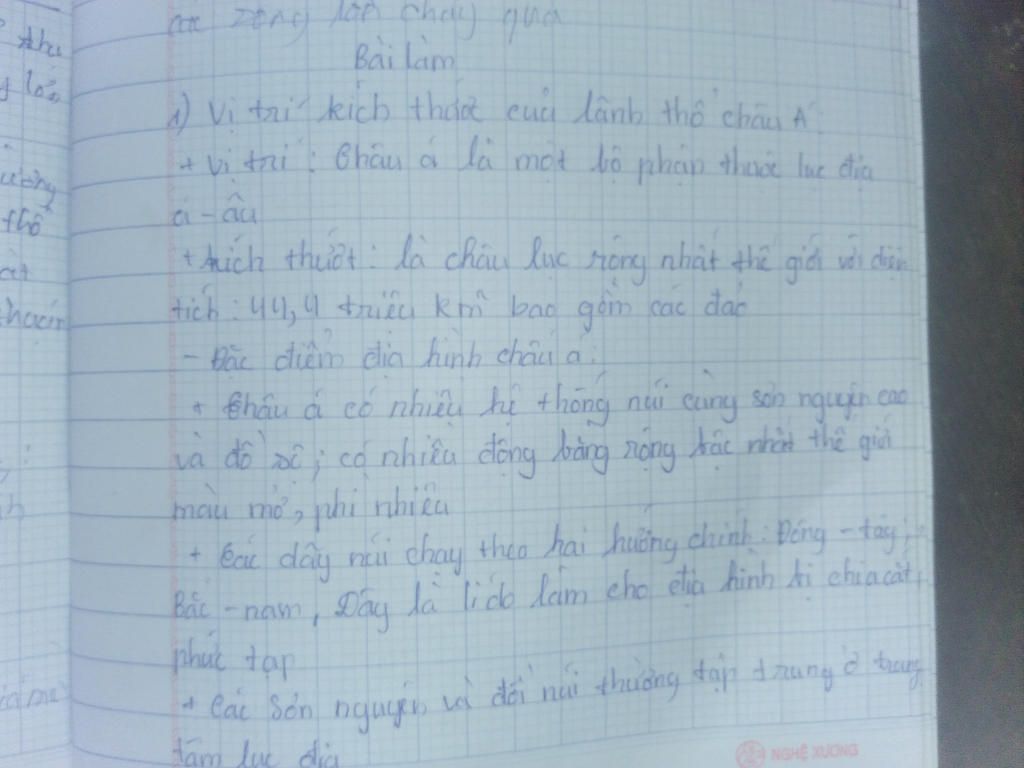 các sông lớn chảy qua
Bài làm
1) Vị trí kích thước của lãnh thổ châu Á
+ Vị trí : Châu á là một bộ phận thuộc lục địa
á - âu
+ kích thướt : là châu lục rộng nhất thế giới với diện
tích : 44,4 triệu km² bao gồm các đảo
- Đặc điểm địa hình châu á :
+ Châu á có nhiều hệ thống núi cùng sơn nguyên cao
và đồ sộ ; có nhiều đồng bằng rộng bậc nhất thế giới
màu mở, phì nhiêu
+ Các dãy núi chạy theo hai hướng chính : Đông - tây ;
Bắc - nam, Đây là lí do làm cho địa hình bị chia cắt,
phức tạp
+ Các sơn nguyên và đồi núi thường tập trung ở trung
tâm lục địa
NGHỆ XƯƠNG
thu
lớn
thổ
cắt